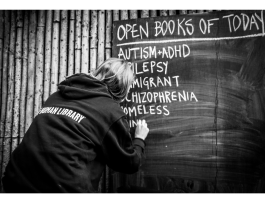 OPEN BOOKS OF TODAY
AUTISM+ADHD
EPILEPSY
IMMIGRANT
SCHIZOPHRENIA
HOMELESS
HUMAN LIBRARY